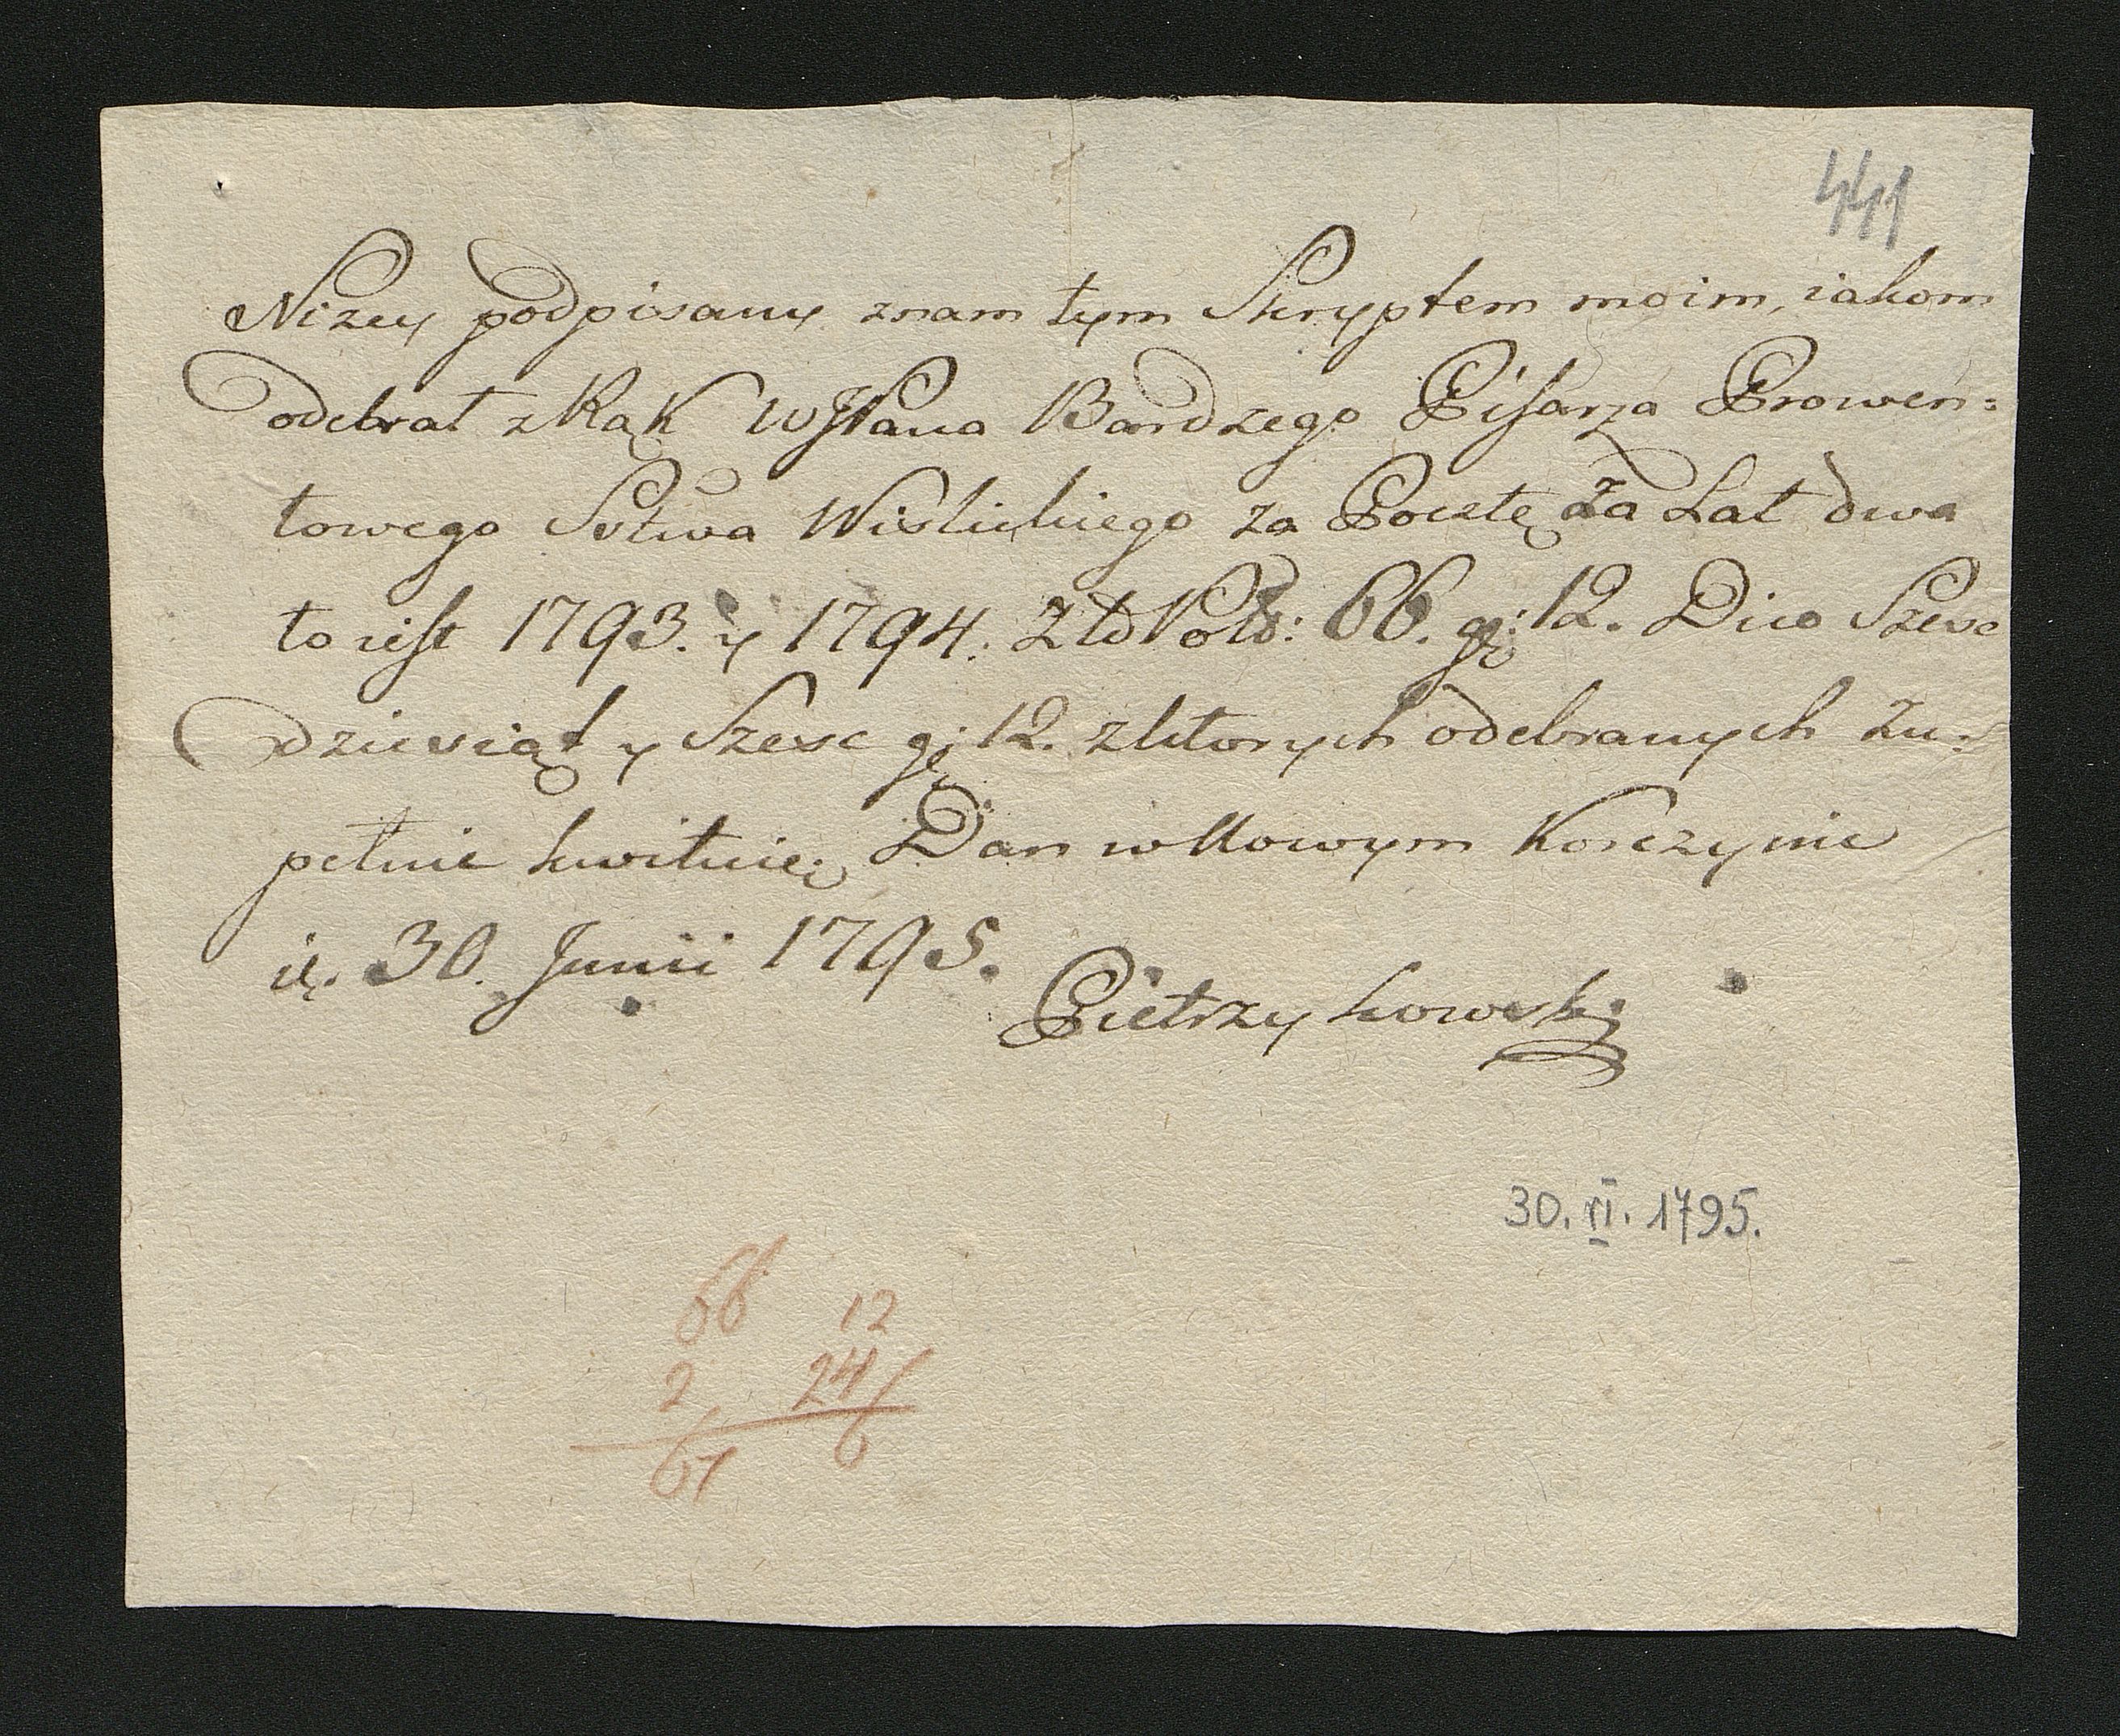 441
Nizey podpisany znam tym Skryptem moim, iakom
odebrał z Rąk WJPana Bardzego Pisarza Prowen=
towego Sstwa Wislickiego za Pocztę za Lat dwa
to iest 1793. y 1794. Zło Pols: 66. gr: 12. Dico Szesc
dziesiąt y Szesc gr: 12. z ktorych odebranych zu=
pełnie kwituię; Dan w Nowym Korczynie
30. Junii 1795.
Pietrzykowski
30. VI. 1795.
66 12
2 24
67 6